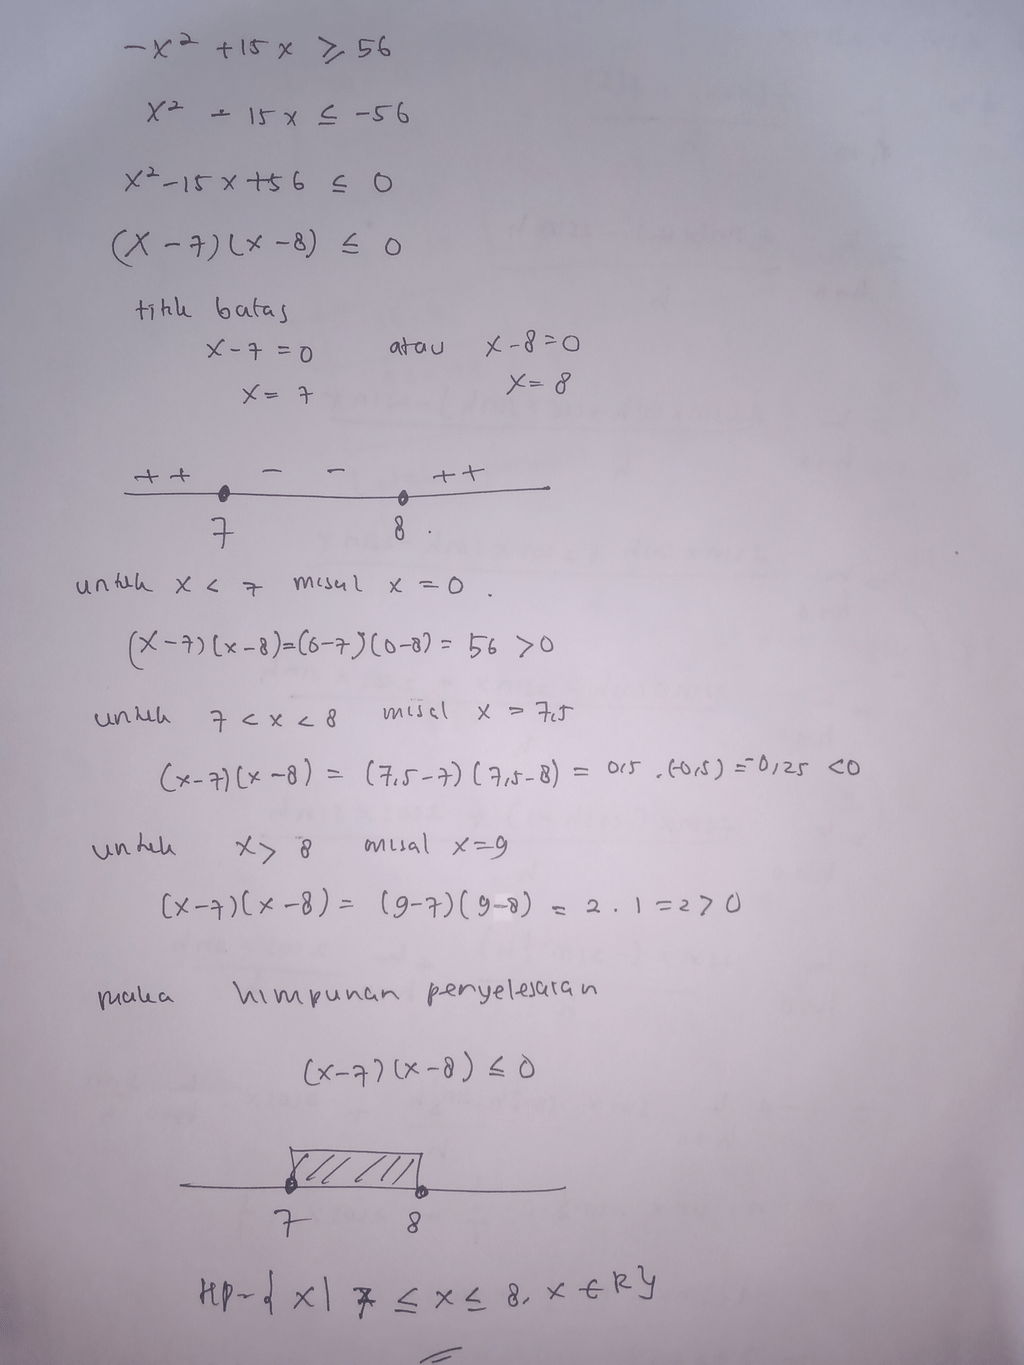 -x² + 15x ≥ 56
x² - 15x ≤ -56
x² - 15x + 56 ≤ 0
(x - 7)(x - 8) ≤ 0
titik batas
x - 7 = 0 atau x - 8 = 0
x = 7 x = 8
+ + - - + +
7 8
untuk x < 7 misal x = 0.
(x-7)(x-8) = (0-7)(0-8) = 56 > 0
untuk 7 < x < 8 misal x = 7,5
(x-7)(x-8) = (7,5-7)(7,5-8) = 0,5 . (-0,5) = -0,25 < 0
untuk x > 8 misal x = 9
(x-7)(x-8) = (9-7)(9-8) = 2 . 1 = 2 > 0
maka himpunan penyelesaian
(x-7)(x-8) ≤ 0
7 8
HP = { x | 7 ≤ x ≤ 8, x ∈ R }